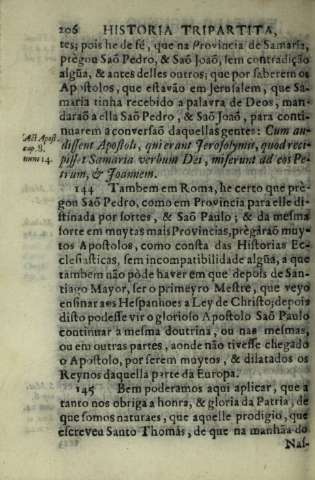 206 HISTORIA TRIPARTITA,
tes; pois he de fé, que na Provincia de Samaria,
prégou Saõ Pedro, & Saõ Joaõ, sem contradiçaõ
algũa, & antes delles outros; que por saberem os
Apostolos, que estavaõ em Jerusalem, que Sa-
maria tinha recebido a palavra de Deos, man-
daraõ a ella Saõ Pedro, & Saõ Joaõ, para conti-
nuarem a conversaõ daquellas gentes: Cum au-
Act. Apost.
cap. 8.
num 14.
dissent Apostoli, qui erant Jerosolymis, quod reci-
pisset Samaria verbum Dei, miserunt ad eos Pe-
trum, & Joannem.
144 Tambem em Roma, he certo que prè-
gou Saõ Pedro, como em Provincia para elle di-
stinada por sortes, & Saõ Paulo; & da mesma
sorte em muytas mais Provincias, prègáraõ muy-
tos Apostolos, como consta das Historias Ec-
clesiasticas, sem incompatibilidade algũa, a que
tambem naõ pòde haver em que depois de San-
tiago Mayor, ser o primeyro Mestre, que veyo
ensinar aos Hespanhoes a Ley de Christo; depois
disto podesse vir o glorioso Apostolo Saõ Paulo
continuar a mesma doutrina, ou nas mesmas,
ou em outras partes, aonde naõ tivesse chegado
o Apostolo, por serem muytos, & dilatados os
Reynos daquella parte da Europa.
145 Bem poderamos aqui aplicar, que a
tanto nos obriga a honra, & gloria da Patria, de
que somos naturaes, que aquelle prodigio, que
escreveu Santo Thomás, de que na manhãa do
Nas-